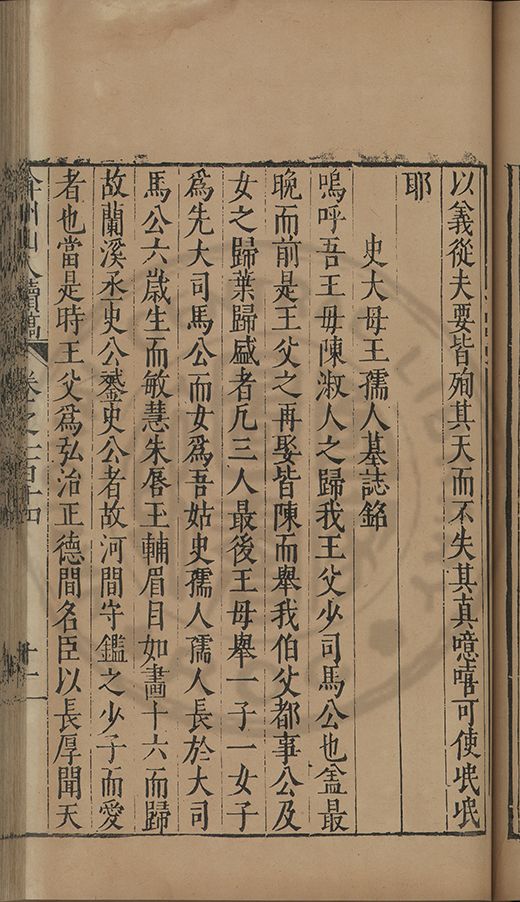 以義從夫要皆殉其天而不失其真噫嘻可使泯泯
耶
史大母王孺人墓誌銘
嗚呼吾王母陳淑人之歸我王父少司馬公也盖最
晚而前是王父之再娶皆陳而舉我伯父都事公及
女之歸葉歸盛者凡三人最後王母舉一子一女子
爲先大司馬公而女爲吾姑史孺人孺人長於大司
馬公六歲生而敏慧朱唇玉輔眉目如畫十六而歸
故蘭溪丞史公鏊史公者故河間守鑑之少子而愛
者也當是時王父爲弘治正德間名臣以長厚聞天
弇州山人續稿 卷之一百十四 十二